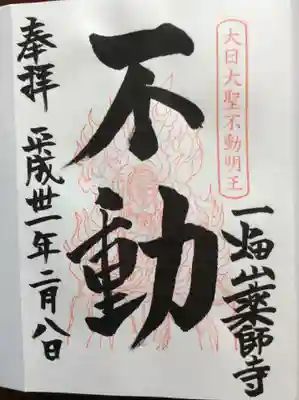 大日大聖不動明王
一畑山薬師寺
不動
奉拝
平成丗一年二月八日